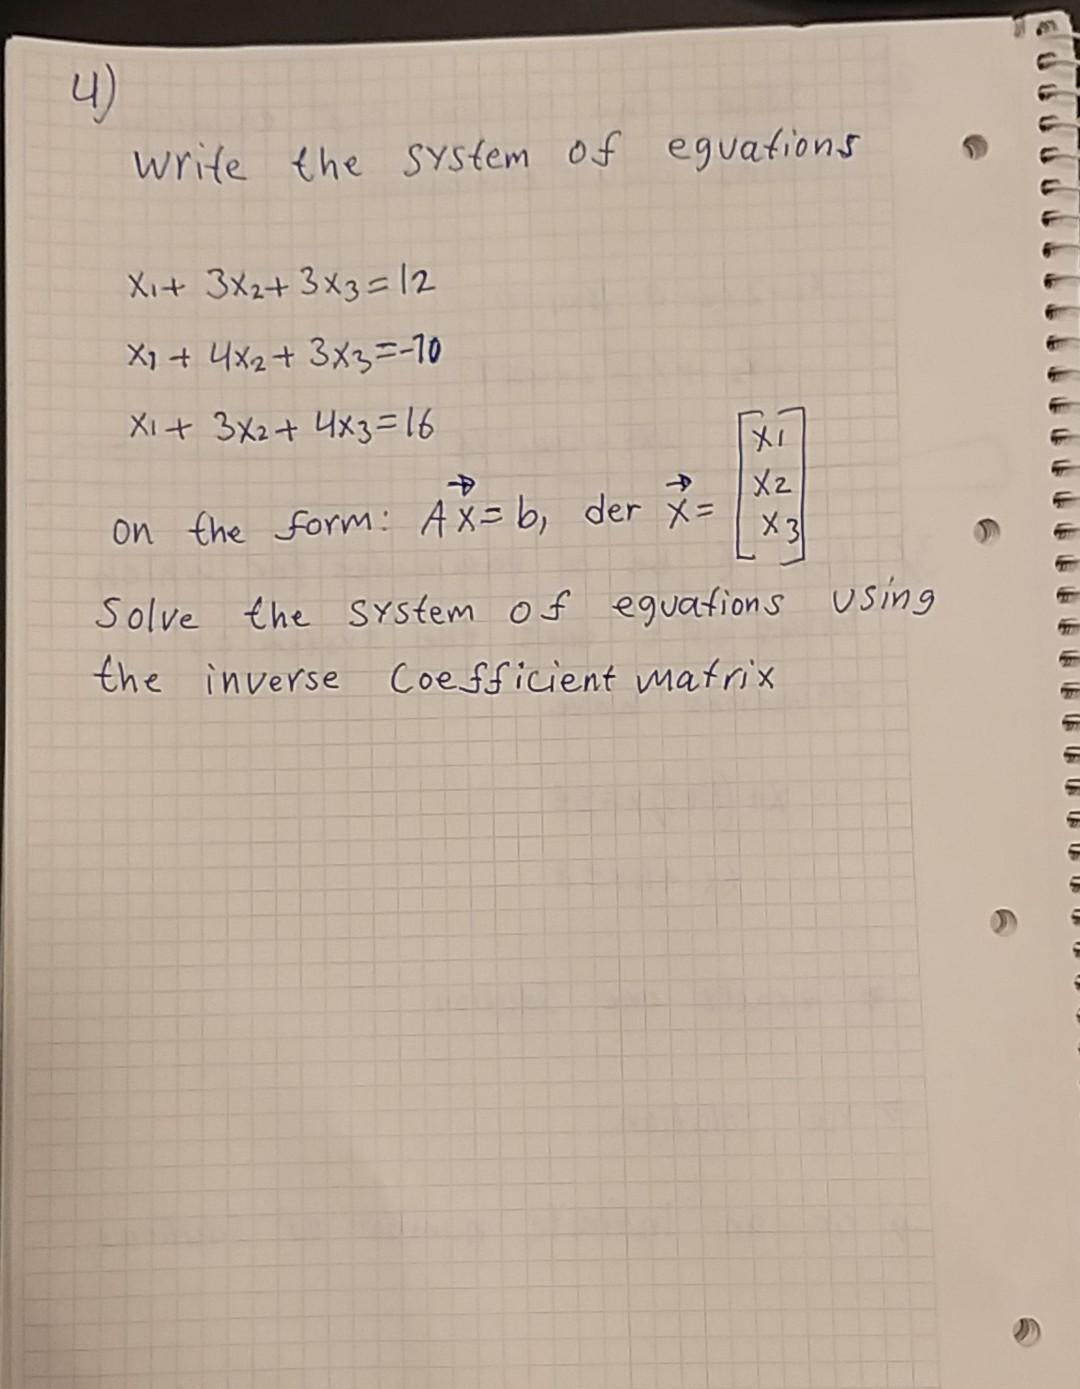 4)
Write the system of equations
x1 + 3x2 + 3x3 = 12
x1 + 4x2 + 3x3 = -10
x1 + 3x2 + 4x3 = 16
on the form: Ax⃗ = b, der x⃗ = [x1
x2
x3]
Solve the system of equations using
the inverse Coefficient matrix